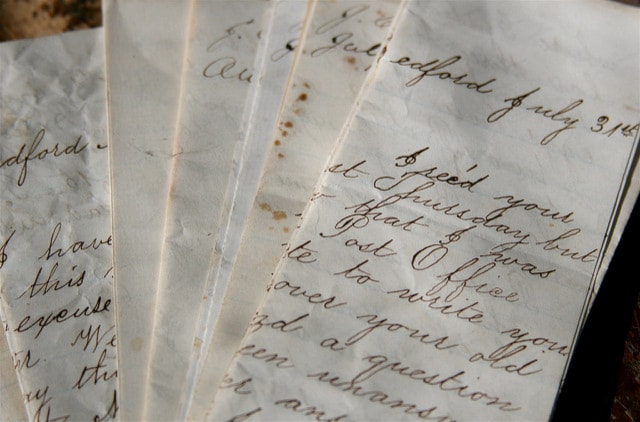 dford -
I have
this
excuse
r. We
y th
E.
Au
J. E
Jul
edford July 31st
I rec'd your
st Thursday but
that I was
Post Office
te to write you
over your old
zd a question
een unansw
er ans